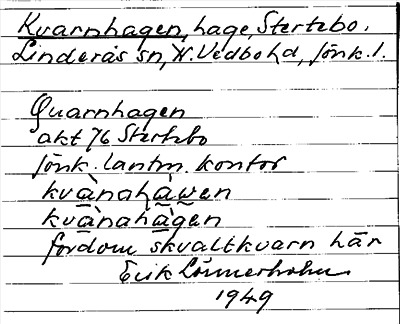 Kvarnhagen, hage, Stertebo.
Linderås sn, N. Vedbo hd, Jönk. l.
Quarnhagen
akt 76 Stertebo
Jönk. lantm. kontor
kvànahàwen
kvànahàgen
fordom skvaltkvarn här
Erik Lönnerholm
1949